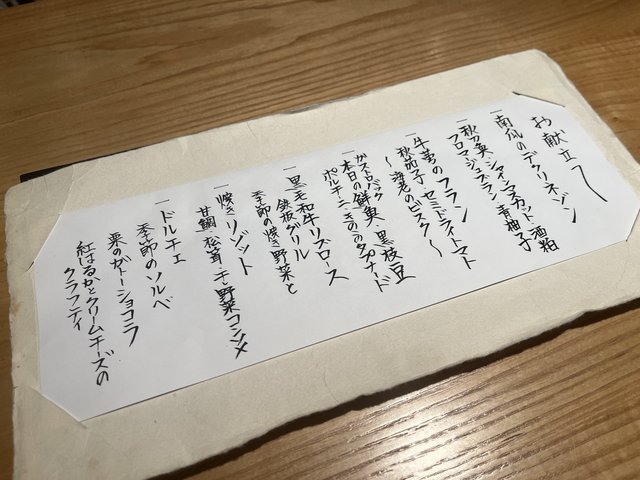 お献立て
一 南瓜のデクリネゾン
一 秋刀魚・シャインマスカット・酒粕
フロマージュブラン・青柚子
一 牛蒡のフラン
秋茄子・セミドライトマト
〜海老のビスク〜
ガストロバック
一 本日の鮮魚・黒枝豆
ポルチーニきのこのタプナード
一 黒毛和牛リブロース
鉄板グリル
季節の焼き野菜と
一 焼きリゾット
甘鯛・松茸・干し野菜コンソメ
一 ドルチェ
季節のソルベ
栗のガトーショコラ
紅はるかとクリームチーズの
クラフティ